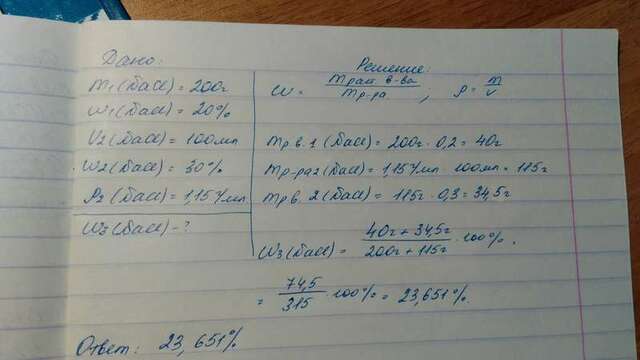 Дано:
m₁(NaCl) = 200г
ω₁(NaCl) = 20%
V₂(NaCl) = 100мл
ω₂(NaCl) = 30%
ρ₂(NaCl) = 1,15г/мл
ω₃(NaCl) - ?
Решение:
ω = mраст в-ва / mр-ра ; ρ = m/v
mр.в.1(NaCl) = 200г · 0,2 = 40г
mр-ра2(NaCl) = 1,15г/мл · 100мл = 115г
mр.в.2(NaCl) = 115г · 0,3 = 34,5г
ω₃(NaCl) = (40г + 34,5г) / (200г + 115г) · 100% =
= 74,5 / 315 · 100% = 23,651%
Ответ: 23,651%